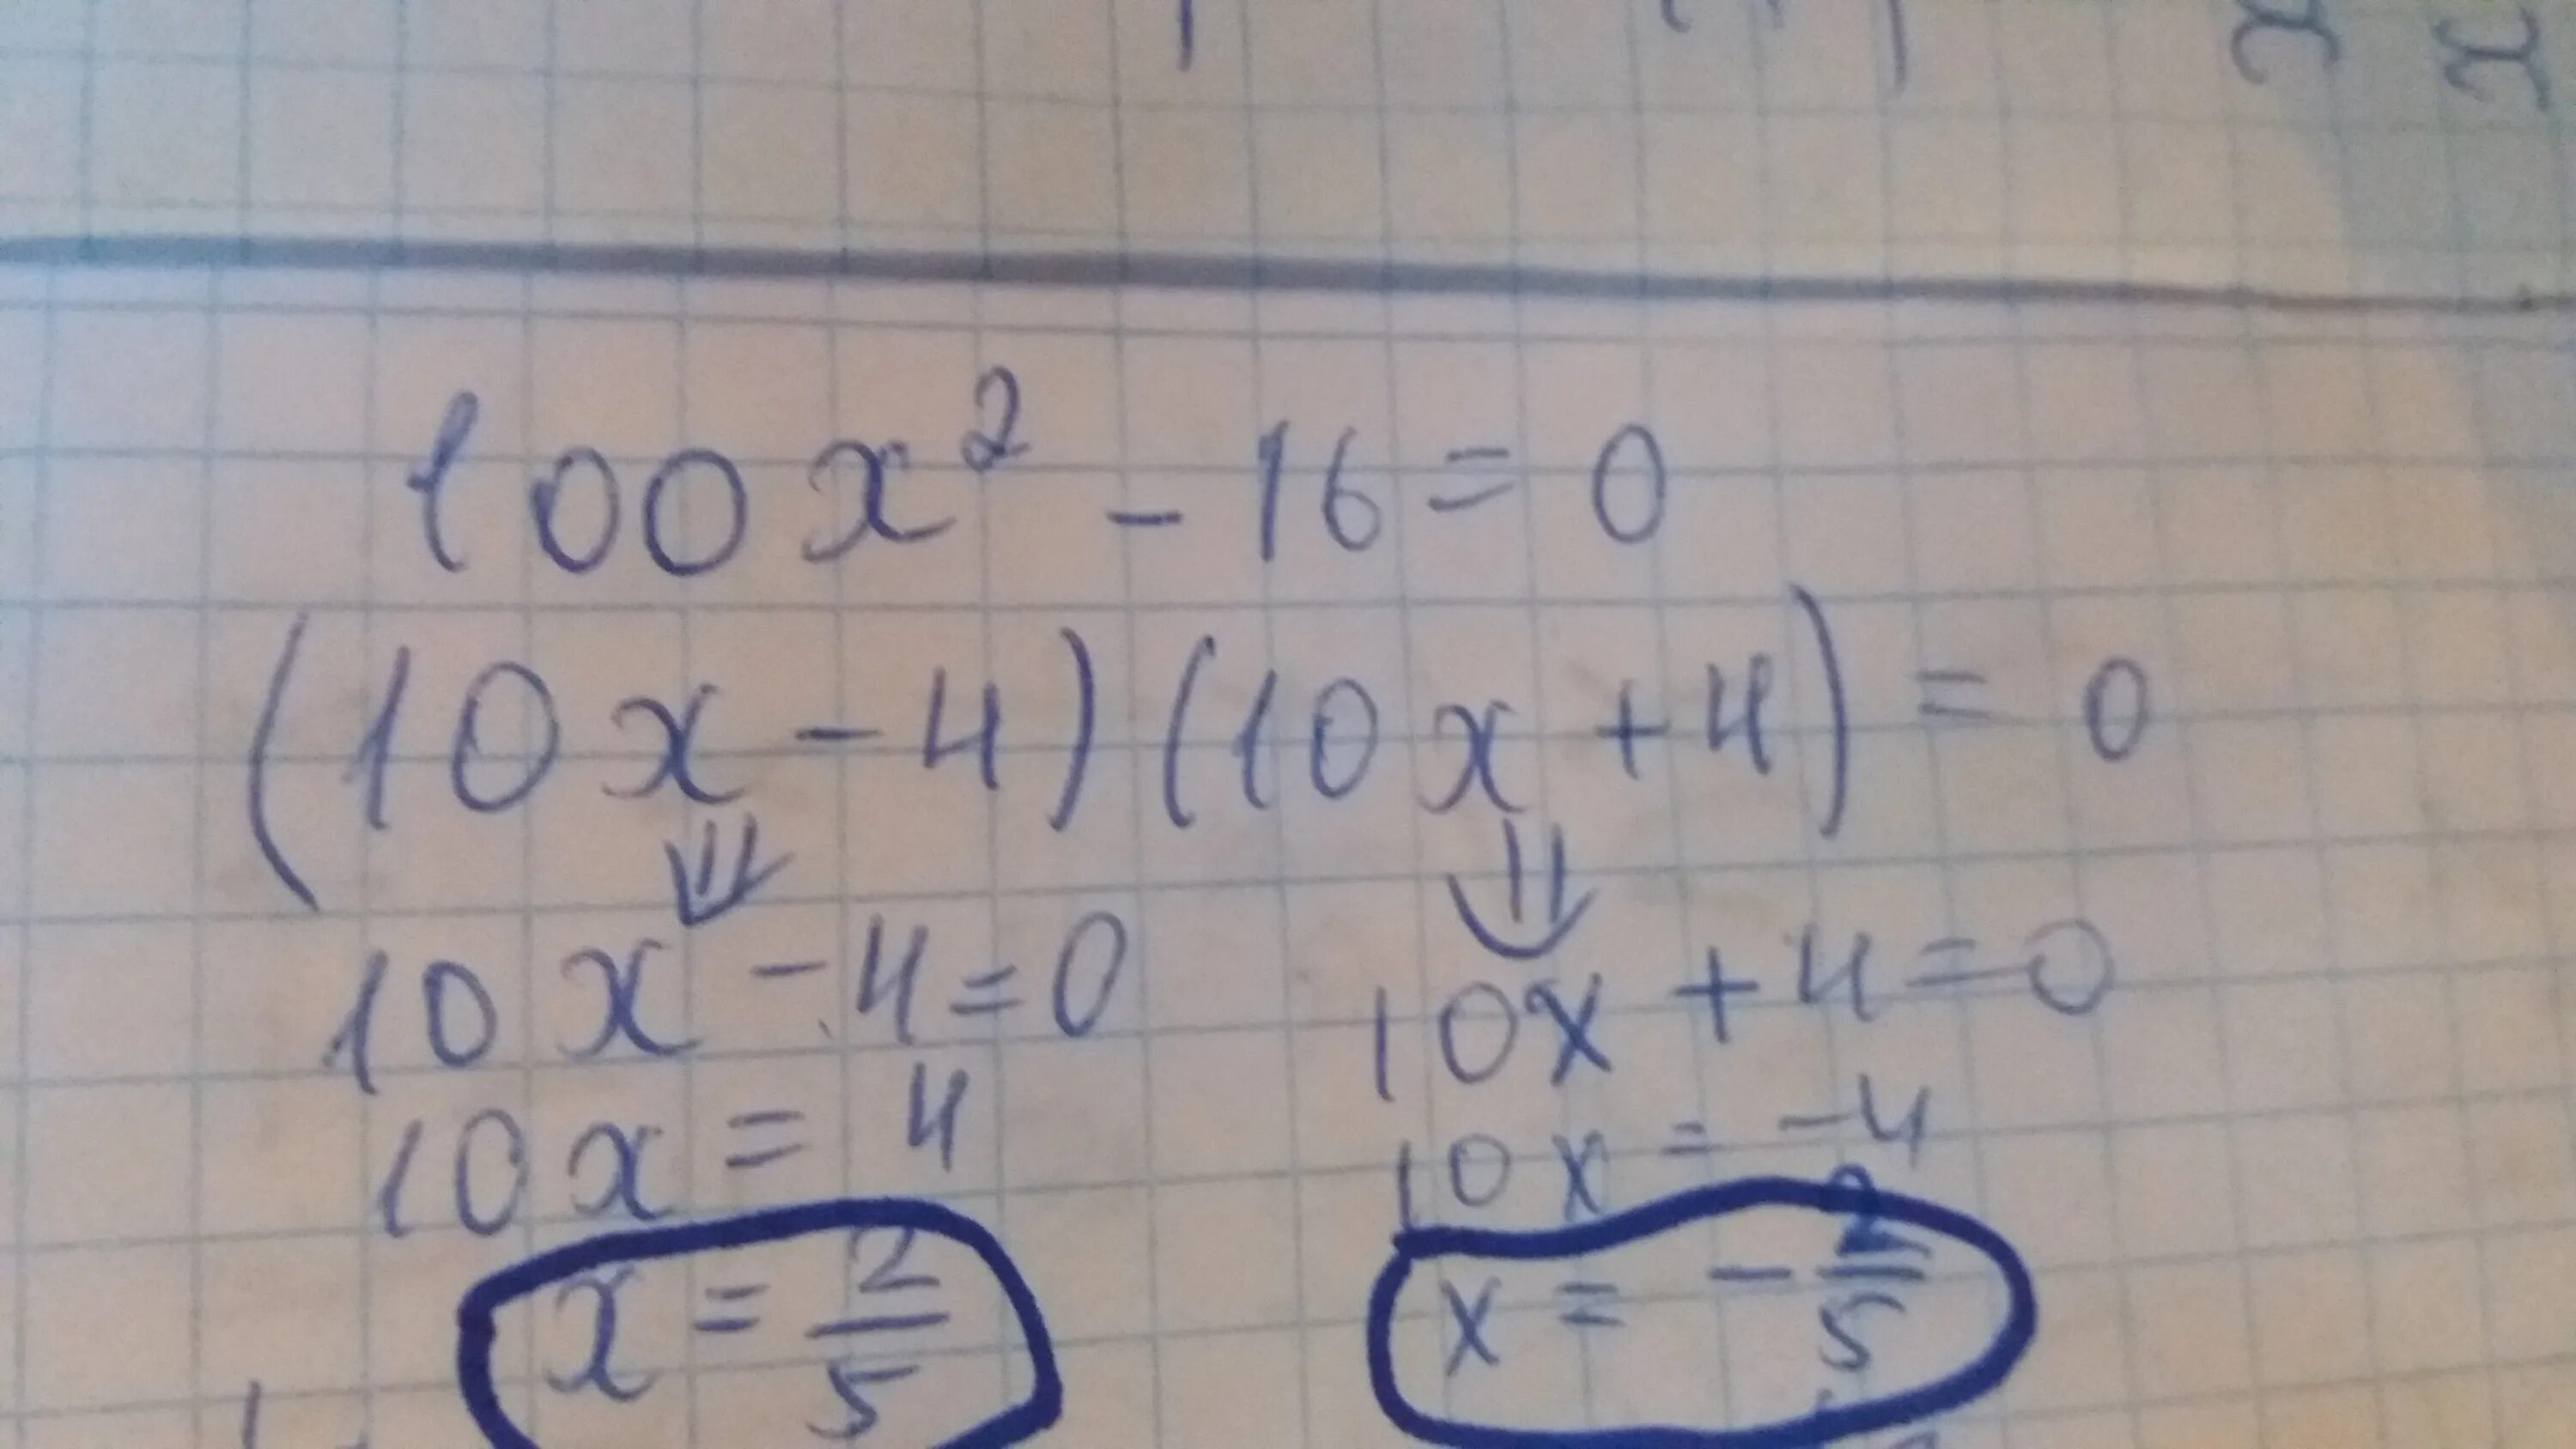 100x² - 16 = 0
(10x - 4)(10x + 4) = 0
10x - 4 = 0 10x + 4 = 0
10x = 4 10x = -4
x = 2/5 x = -2/5